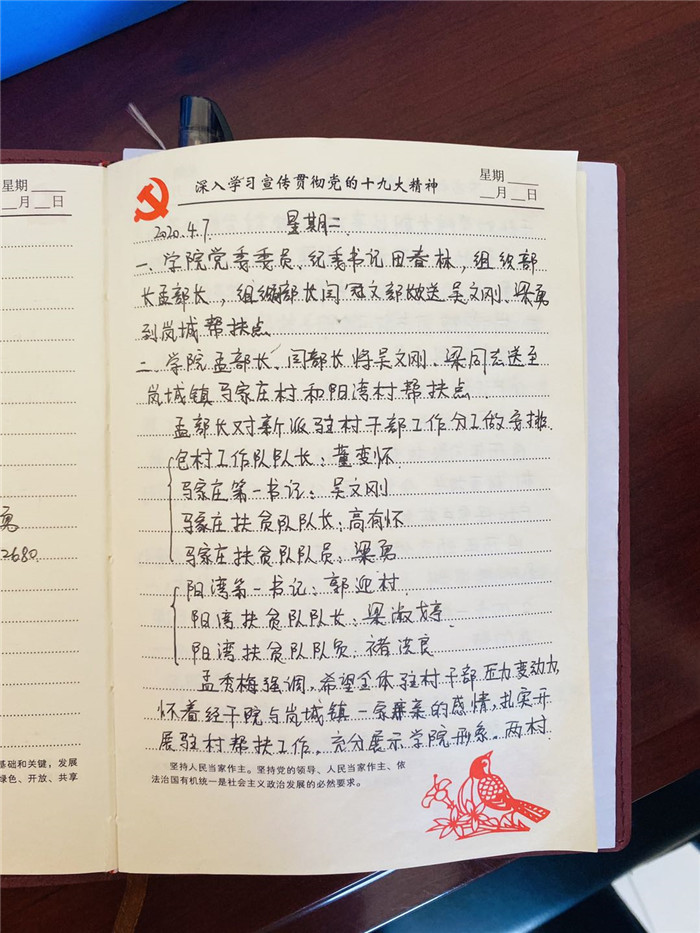 星期____
__月__日
勇
2680
基础和关键，发展
绿色、开放、共享
深入学习宣传贯彻党的十九大精神
星期____
__月__日
2020.4.7. 星期二.
一、学院党委委员、纪委书记田春林，组织部
长孟部长，组织部长闫部长欢送吴文刚、梁勇
到岚城帮扶点.
二、学院孟部长、闫部长将吴文刚、梁同志送至
岚城镇马家庄村和阳湾村帮扶点.
孟部长对新派驻村干部工作分工做安排.
包村工作队队长：董变怀.
马家庄第一书记：吴文刚
马家庄扶贫队队长：高有怀
马家庄扶贫队队员：梁勇
阳湾第一书记：郭迎村.
阳湾扶贫队队长：梁淑婷.
阳湾扶贫队队员：褚洪良
孟秀梅强调，希望全体驻村干部压力变动力，
怀着经干院与岚城镇一家亲的感情，扎实开
展驻村帮扶工作。充分展示学院形象。两村
坚持人民当家作主。坚持党的领导、人民当家作主、依
法治国有机统一是社会主义政治发展的必然要求。